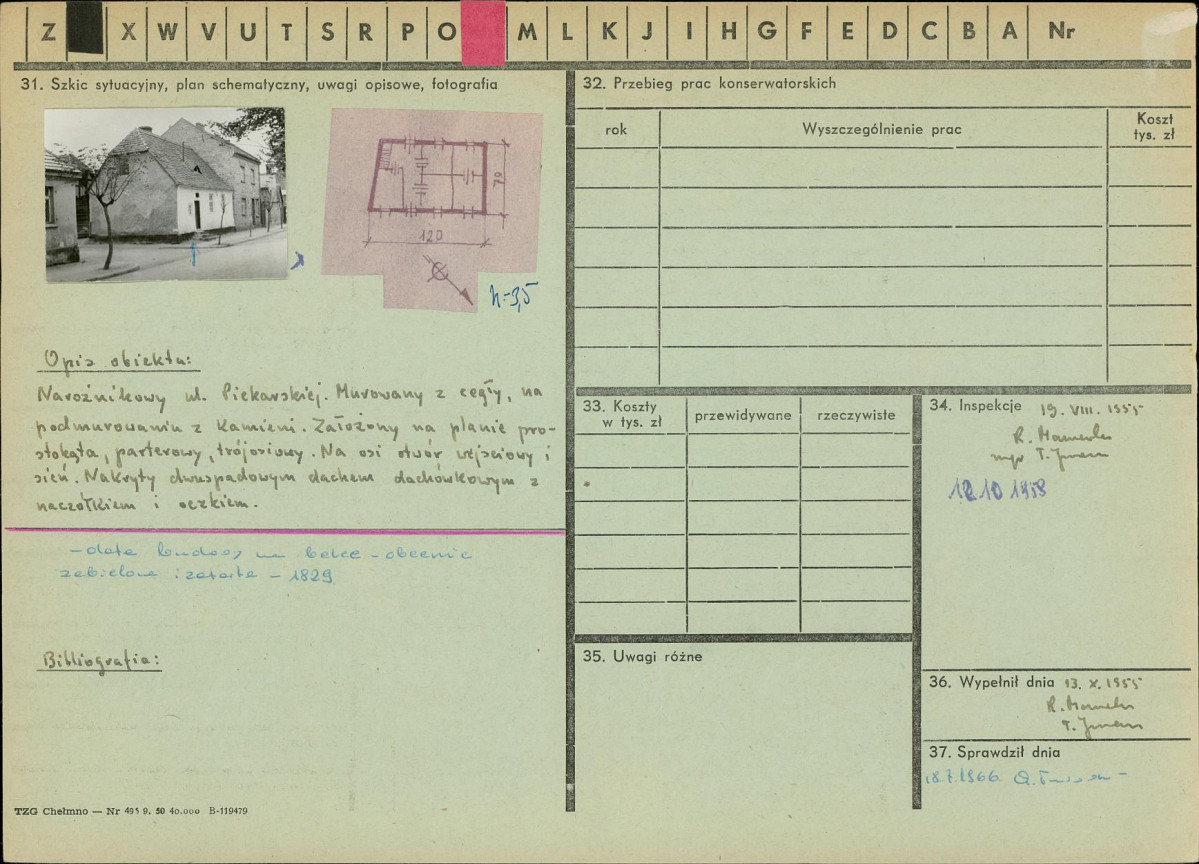 Z X W V U T S R P O M L K J I H G F E D C B A Nr
31. Szkic sytuacyjny, plan schematyczny, uwagi opisowe, fotografia
70
120
h=3,5
Opis obiektu:
Narożnikowy ul. Piekarskiej. Murowany z cegły, na
podmurowaniu z kamieni. Założony na planie pro-
stokąta, parterowy, trójosiowy. Na osi otwór wejściowy i
sień. Nakryty dwuspadowym dachem dachówkowym z
naczółkiem i oczkiem.
- data budowy na belce - obecnie
zabielona i zatarta - 1829
Bibliografia:
TZG Chełmno — Nr 495 9. 50 40.000 B-119479
32. Przebieg prac konserwatorskich
rok
Wyszczególnienie prac
Koszt
tys. zł
33. Koszty
w tys. zł
przewidywane
rzeczywiste
34. Inspekcje 19. VIII. 1955
R.
mgr T.
12 10 1958
35. Uwagi różne
36. Wypełnił dnia 13. X. 1955
R.
T.
37. Sprawdził dnia
18.7.1966